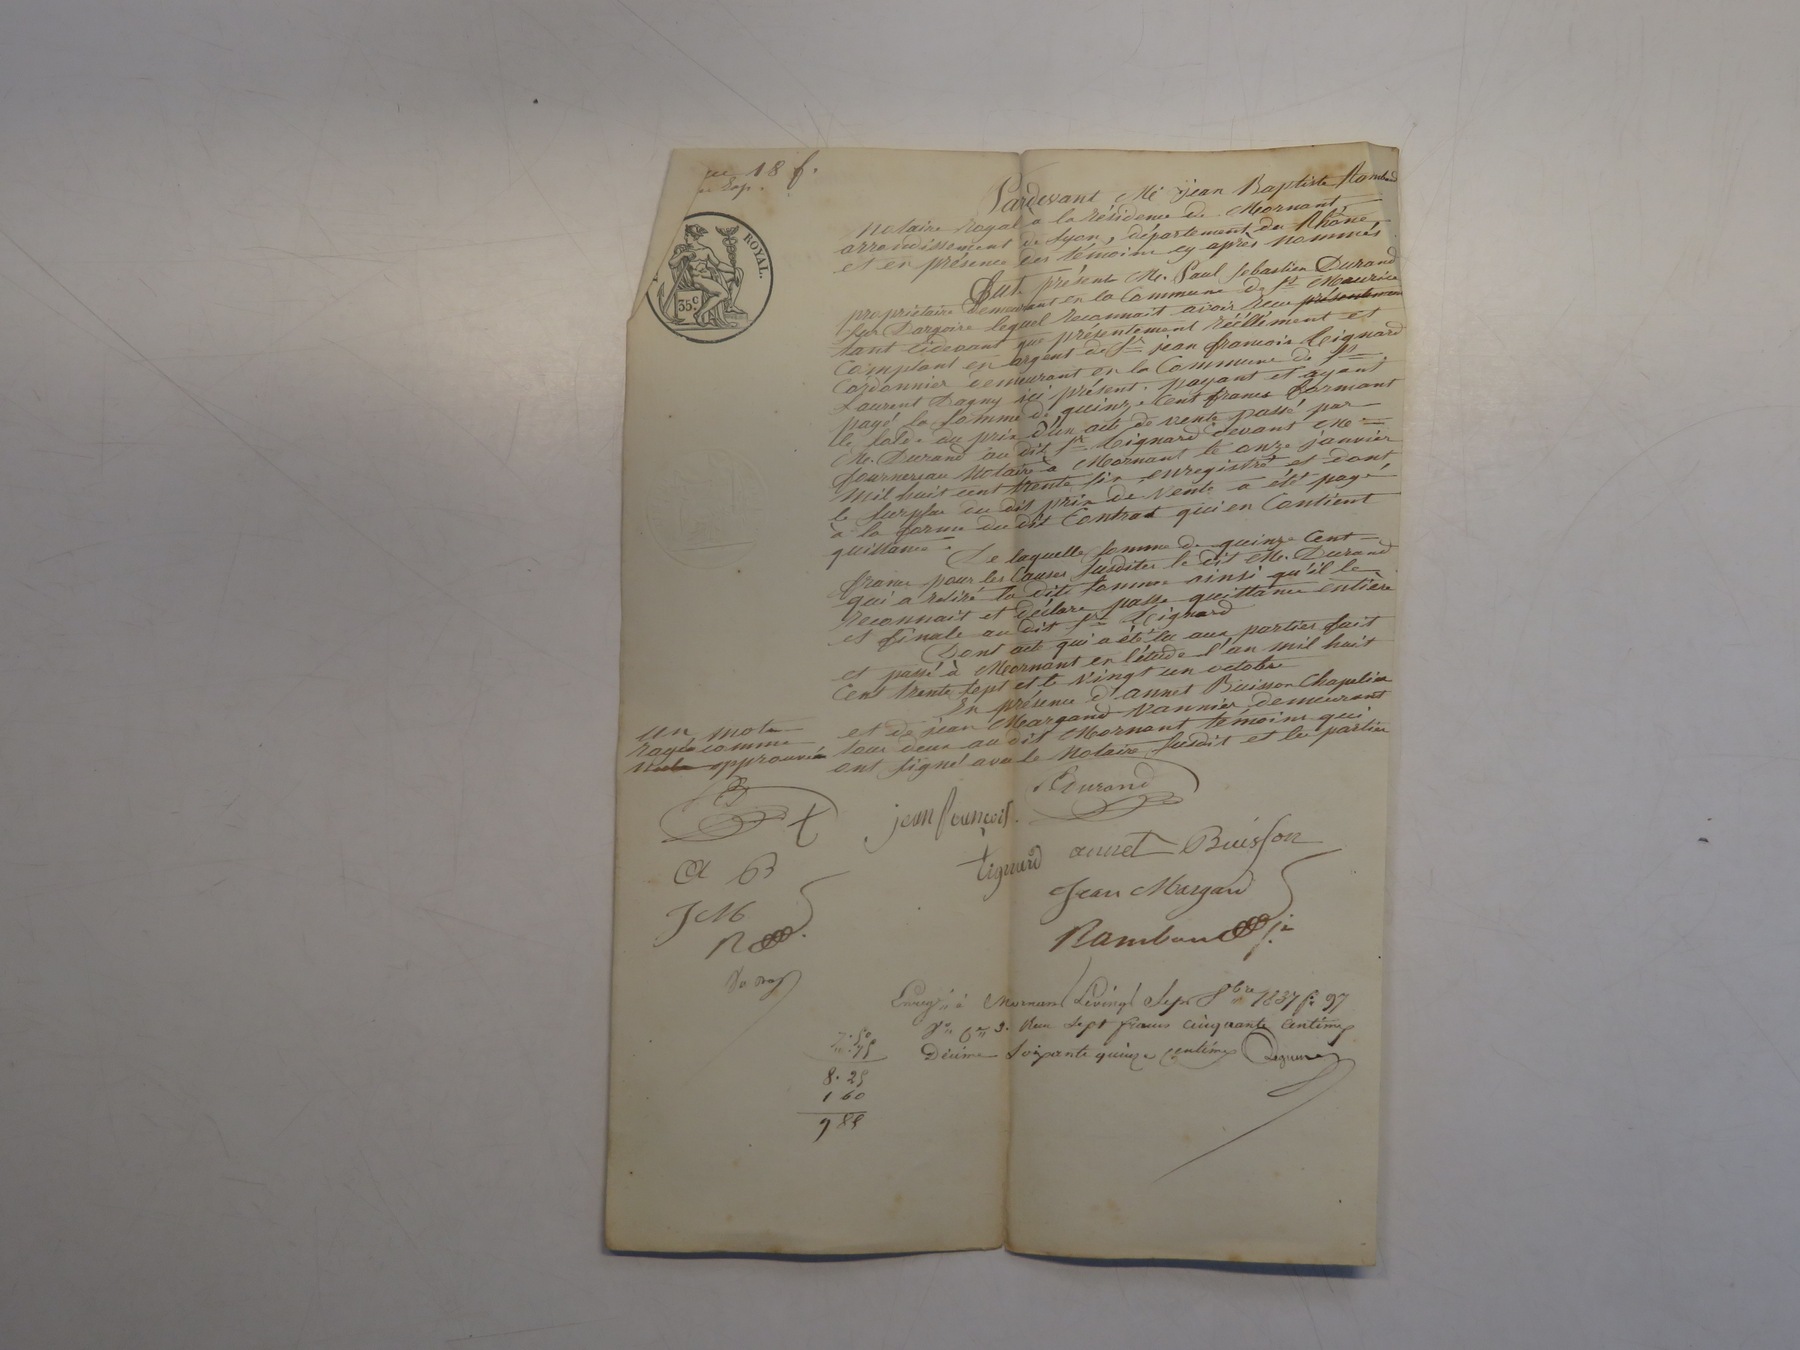 18 f.
ROYAL.
35 c
Pardevant Me jean Baptiste Rambaud
Notaire Royal a la résidence de Mornant,
arrondissement de Lyon, département du Rhône,
et en présence des témoins cy après nommés
fut présent M. Paul Sebastien Durand
propriétaire demeurant en la Commune de St Maurice
sur Dargoire lequel reconnait avoir recu présentement
tant cidevant que présentement réellement et
Comptant en argent de Sr jean francois Tignard
Cordonnier demeurant en la Commune de St
Laurent Dagny ici présent, payant et ayant
payé la somme de quinze cent francs formant
le solde du prix d'un acte de vente passé par
M. Durand au dit Sr Tignard devant Me
fournereau Notaire à Mornant le onze janvier
mil huit cent trente six enregistré et dont
le surplus du dit prix de vente a été payé
à la forme du dit Contrat qui en Contient
quittance.
De laquelle somme de quinze Cent
francs pour les Causes susdites le dit M. Durand
qui a retiré la dite somme ainsi qu'il le
reconnait et déclare passe quittance entière
et finale au dit Sr Tignard
Dont acte qui a été lu aux parties fait
et passé à Mornant en l'étude l'an mil huit
Cent trente sept et le vingt un octobre
En présence d'annet Buisson Chapelier
et de jean Margand Vannier demeurant
tous deux au dit Mornant témoins qui
ont signé avec le Notaire susdit et les parties
un mot
rayé comme
nul approuvé
Durand
jean francois
Tignard
annet Buisson
Jean Margand
Rambaud jn
A B
J M
R
Enregé à Mornant le vingt sept 8bre 1837 fo 97
vo ce 3. Reçu sept francs cinquante centimes
Décime soixante quinze centimes
7. 50
75
8. 25
1 60
9 85